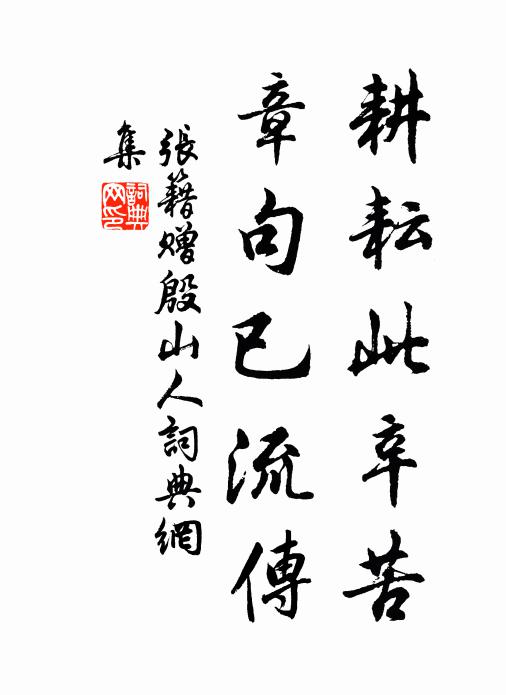 耕耘此辛苦
章句已流傳
張籍贈殷山人詞典網
集
詞典網印